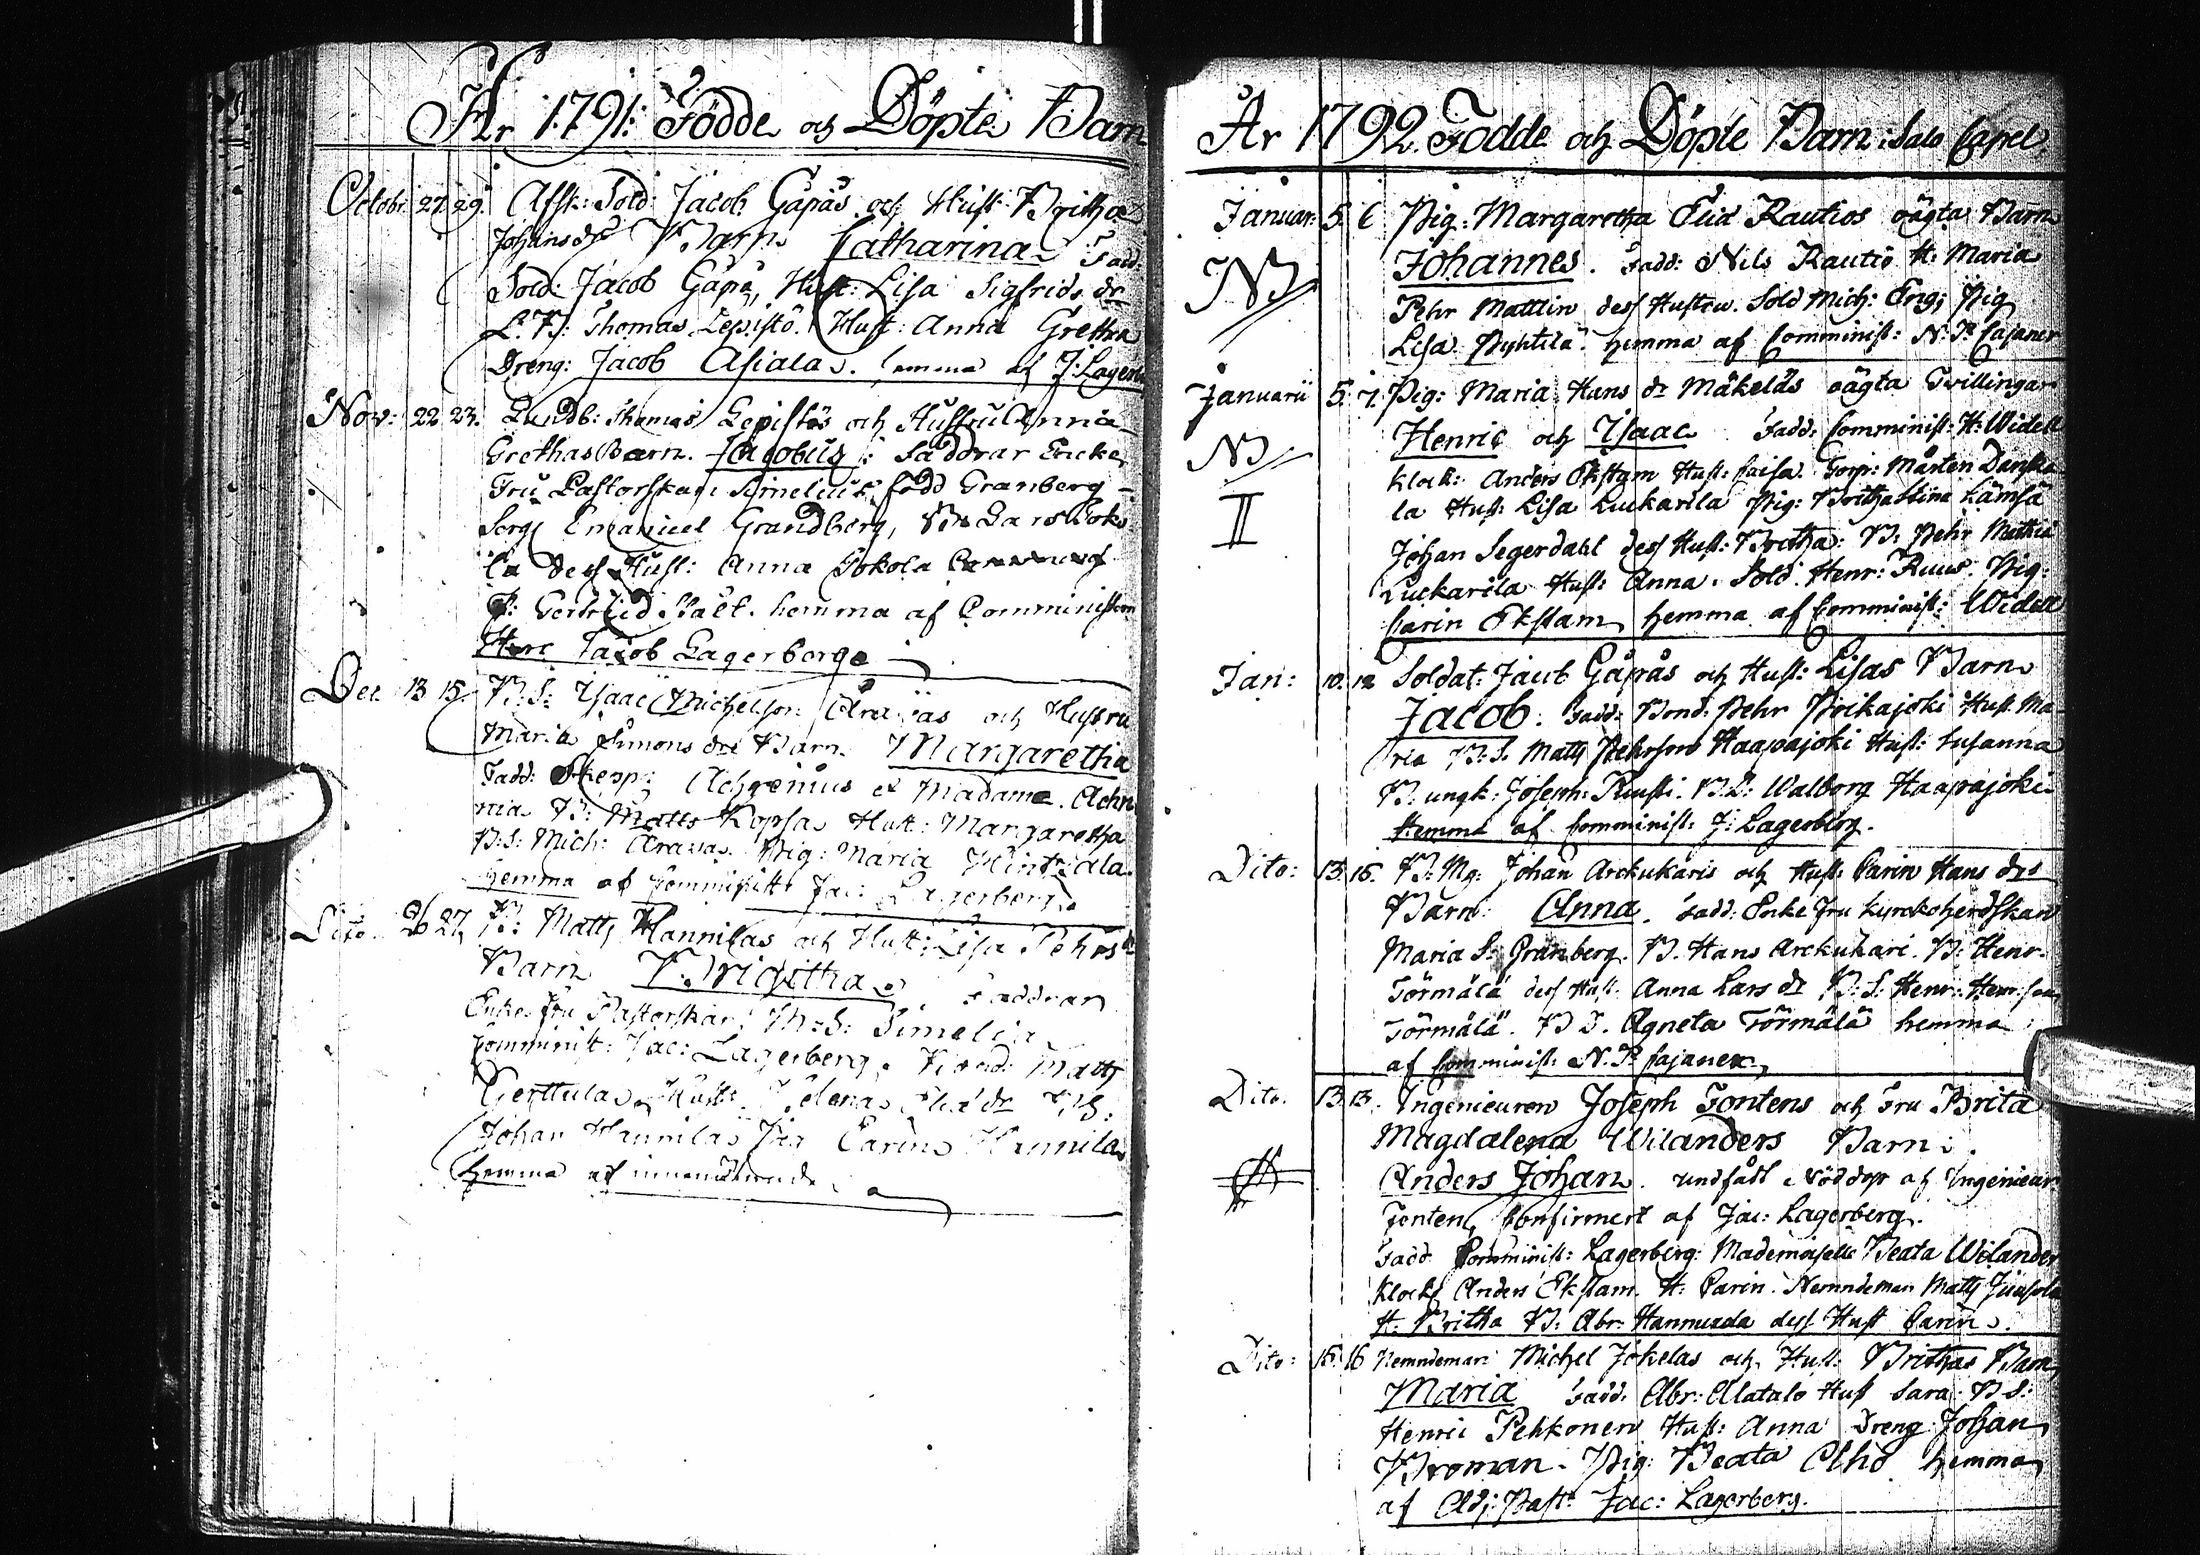 År 1791. Födde och Döpte Barn
Octobr: 27. 29. Afsk: Sold: Jacob Gåpås och Hust: Britha
Johansdr Barn Catharina Fadd:
Sold: Jacob Gåpå, Hust: Lisa Sigfrids dr
L. B: Thomas Lepistö Hust: Anna Gretha
Dreng: Jacob Asiala. hemma af J: Lagerb
Nov: 22 23. Landb: Thomas Lepistös och Hustru Anna
Grethas Barn. Jacobus: Faddrar Encke
Fru Pastorskan Simelius född Granberg
Serg Emanuel Grandberg, Lars
la dess Hust: Anna
P: Gertrud hemma af Comministern
Herr Jacob Lagerberg
Dec 13 15. B: S: Isaac Michelson Aravas och Hustru
Maria Simons dr Barn Margaretha
Fadd: Skepp: et Madame
nia B: Matts Kopsa Hust: Margaretha
B: S: Mich: Aravas. Pig: Maria
hemma af Comminist: Jac: Lagerberg
Dito 26 27. B: Matts Hannilas och Hust: Lisa Pehrs dr
Barn Brigitha. Faddrar
Enke fru Pastorskan M: S: Simelia
Comminist: Jac: Lagerberg, Matts
Gerttula, Hust: Helena B: S:
Johan Hannila Pig Carin Hannila
hemma af
År 1792. Födde och Döpte Barn i Salo Capel
Januar: 5. 6 Pig: Margaretha Elid Rautios oägta Barn
Johannes. Fadd: Nils Rautio H: Maria
NB Pehr Mattlin dess Hustru. Sold Mich: Eng; Pig
Lisa Pyhtilä. hemma af Comminist: N. P. Cajaner
Januarii 5. 7. Pig: Maria Hans dr Mäkeläs oägta Tvillingar
Henric och Isaac Fadd: Comminist: H: Widell
NB Klock: Anders Ekstam Hust: Caisa. Torp: Mårten Danska
II la Hust: Lisa Luckarila Pig: Britha Stina Lämsä
Johan Segerdahl dess Hust: Britha: B: Pehr Matts
Luckarila Hust: Anna. Sold: Henr: Ruus. Pig:
Carin Ekstam hemma af Comminist: Widell
Jan: 10. 12 Soldat: Jacob Gåpås och Hust: Lisas Barn
Jacob. Fadd: Bond: Pehr Pirikajoki Hust. Ma
ria B: S. Matts Pehrson Haapajoki Hust: Susanna
B: ungk: Joseph: Ruusti. B. D: Walborg Haapajoki
Hemma af Comminist: J: Lagerberg.
Dito: 13. 15. B: Mg: Johan Arckukaris och Hust: Carin Hans drs
Barn: Anna. Fadd: Enke fru Kyrckoherdskan
Maria S: Granberg. B. Hans Arckukari. B: Henr:
Törmälä dess Hust: Anna Lars dr B: S: Henr: Henr: son
Törmälä. B D. Agneta Törmälä hemma
af Comminist: N. P. Cajaner
Dito. 13. 13. Ingenieuren Joseph Tontens och Fru Brita
Magdalena Wilanders Barn:
Anders Johan. undfått nöddop af Ingenieur
Tonten, Confirmert af Jac: Lagerberg.
Fadd Comminist: Lagerberg: Mademoiselle Beata Wilander
Klock: Anders Ekstam. H: Carin. Nemndeman Matts Juusola
H: Britha B: Abr: Hannuxela dess Hust Carin.
Dito: 15. 16 Nemndeman Michel Jokelas och Hust: Brithas Barn
Maria Fadd: Abr: Alatalo Hust Sara. B S:
Henric Pehkonen Hust: Anna Dreng Johan
Broman. Pig: Beata Olho hemma
af Adj: Past: Jac: Lagerberg.